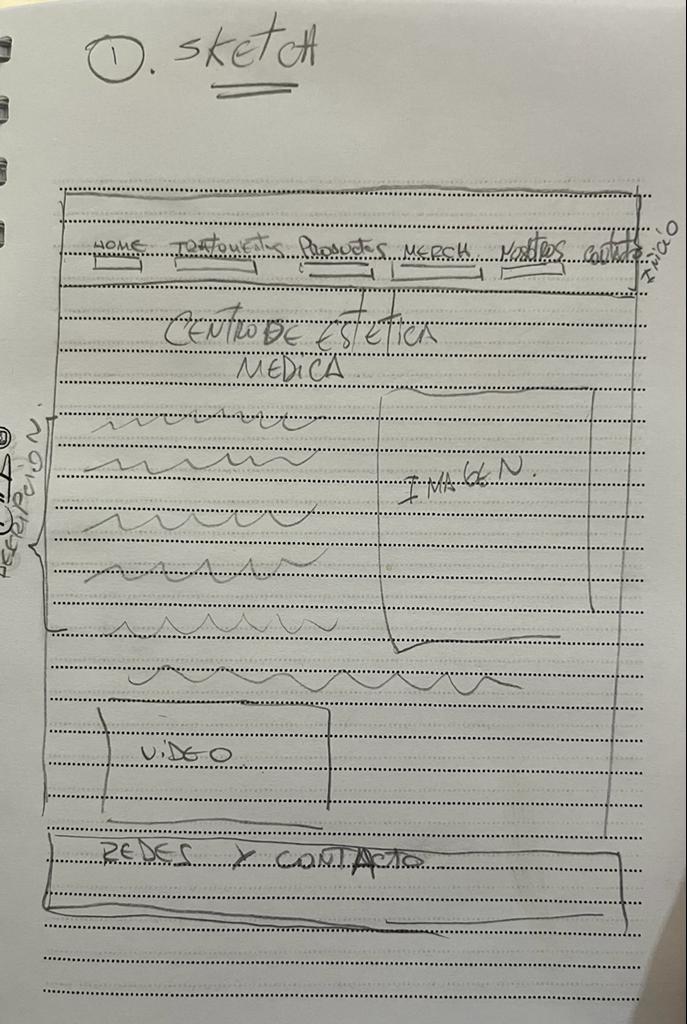 1. SKETCH
HOME TRATAMIENTOS PRODUCTOS MERCH NOSOTROS CONTACTO
INICIO
CENTRO DE ESTETICA
MEDICA
IMAGEN.
VIDEO
REDES Y CONTACTO